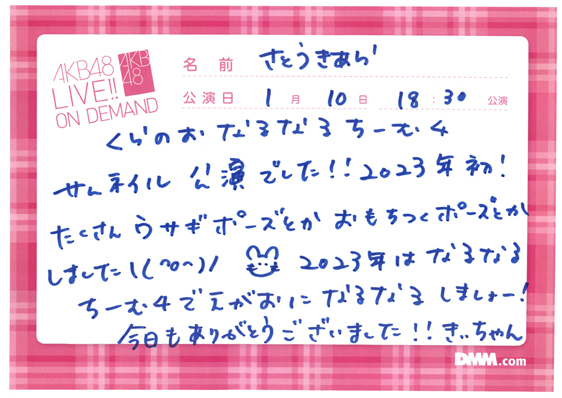 AKB48
LIVE!!
ON DEMAND
AKB
48
名前 さとうきあら
公演日 1月 10日 18:30 公演
くらのお なるなるちーむ4
サムネイル 公演でした!!2023年初!
たくさんウサギポーズとか おもちつくポーズとか
しましたー!(^o^)/ 2023年は なるなる
ちーむ4でえがおに なるなる しましょー!
今日もありがとうございました!! きぃちゃん
DMM.com